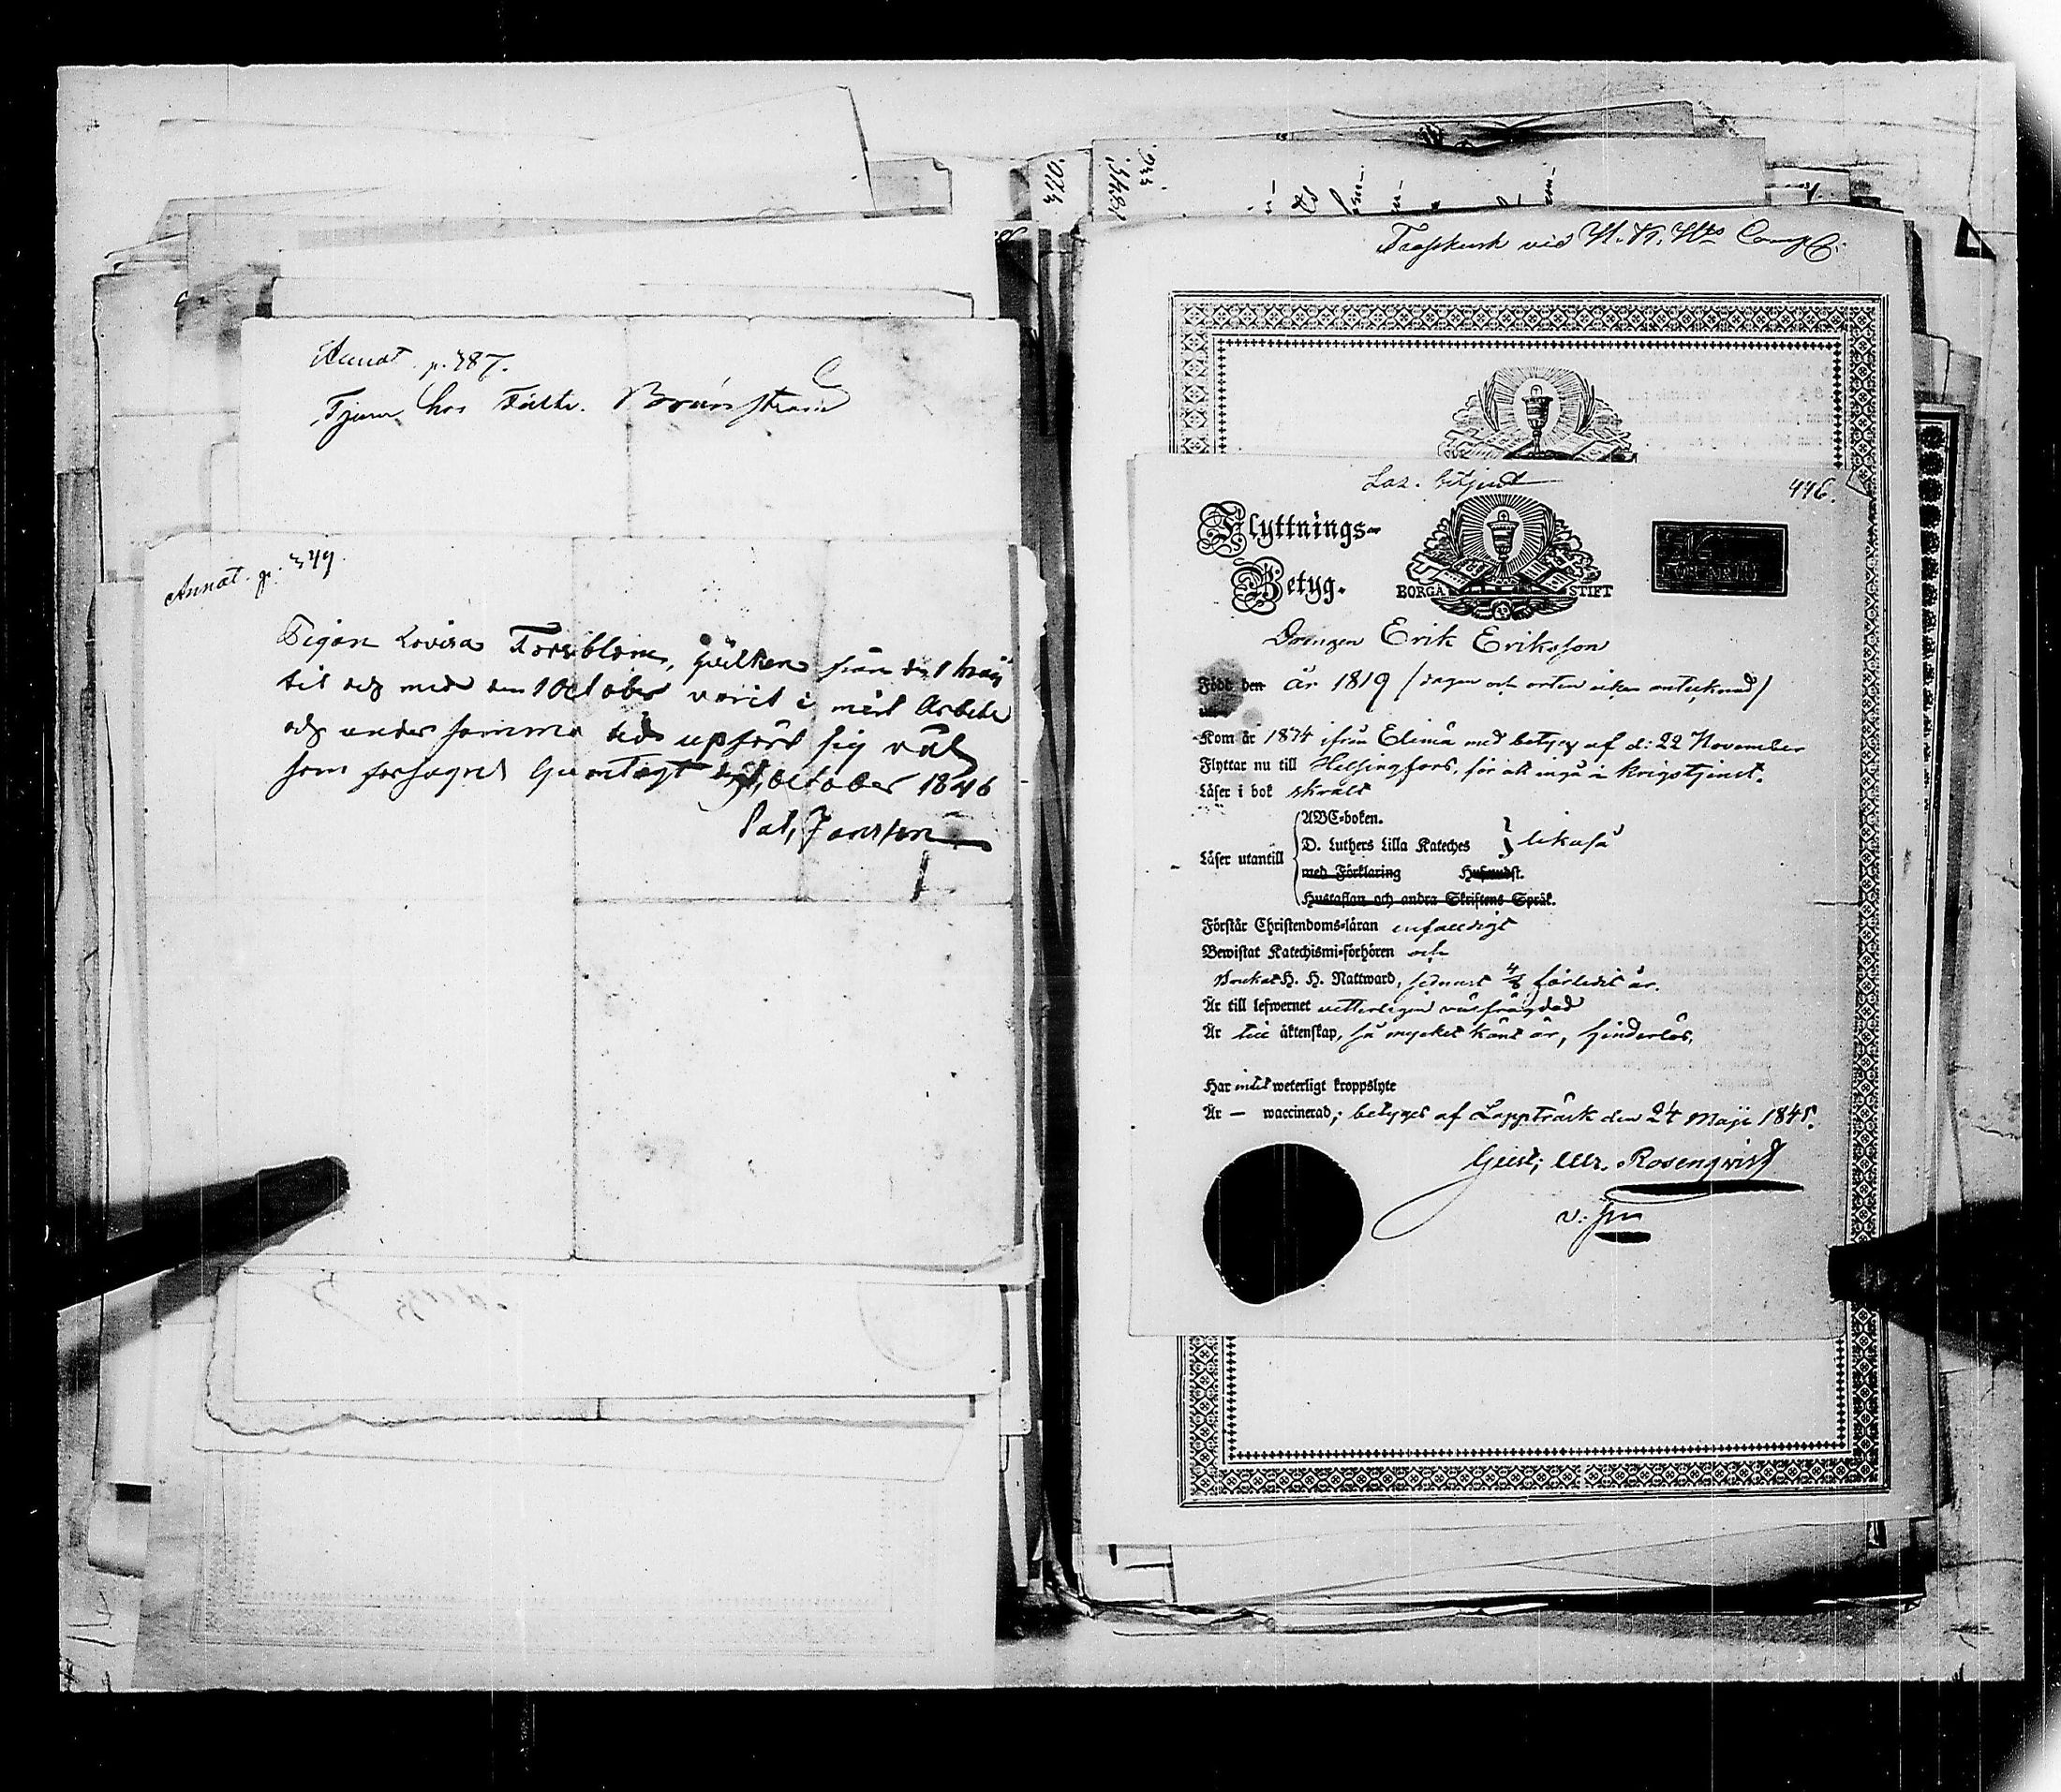 Annat. p. 387.
Tjenar hos Fältv. Brunström
Annat. p. 349.
Pigan Lovisa Forsblom, hvilken från den 1 Maji
til och med den 1 October varit i mitt Arbete
och under samma tid upfört sig väl
som försagnt Gumtägt October 1846
Jansson
420.
434.
436.
vid
Laz. betjent
446.
Flyttnings-
Betyg.
BORGÅ STIFT
Drängen Erik Eriksson
Född den år 1819 (dagen och orten icke antecknad)
Kom år 1834 ifrån Elimä med betyg af d: 22 November
Flyttar nu till Helsingfors, för att ingå i krigstjenst.
Läser i bok skralt
Läser utantill
ABC-boken.
D. Luthers Lilla Kateches } likaså
med Förklaring Husandst.
Hustaflan och andra Skriftens Språk.
Förstår Christendoms-läran enfaldigt
Bewistat Katechismi-förhören och
Brukat H. H. Nattward, sednast 4/8 förledit år.
Är till lefwernet vetterligen välfrägdad
Är till äktenskap, så mycket känt är, hinderlös.
Har intet weterligt kroppslyte
Är — waccinerad; betyges af Lappträsk den 24 Maji 1845.
Gust. Rosenqvist